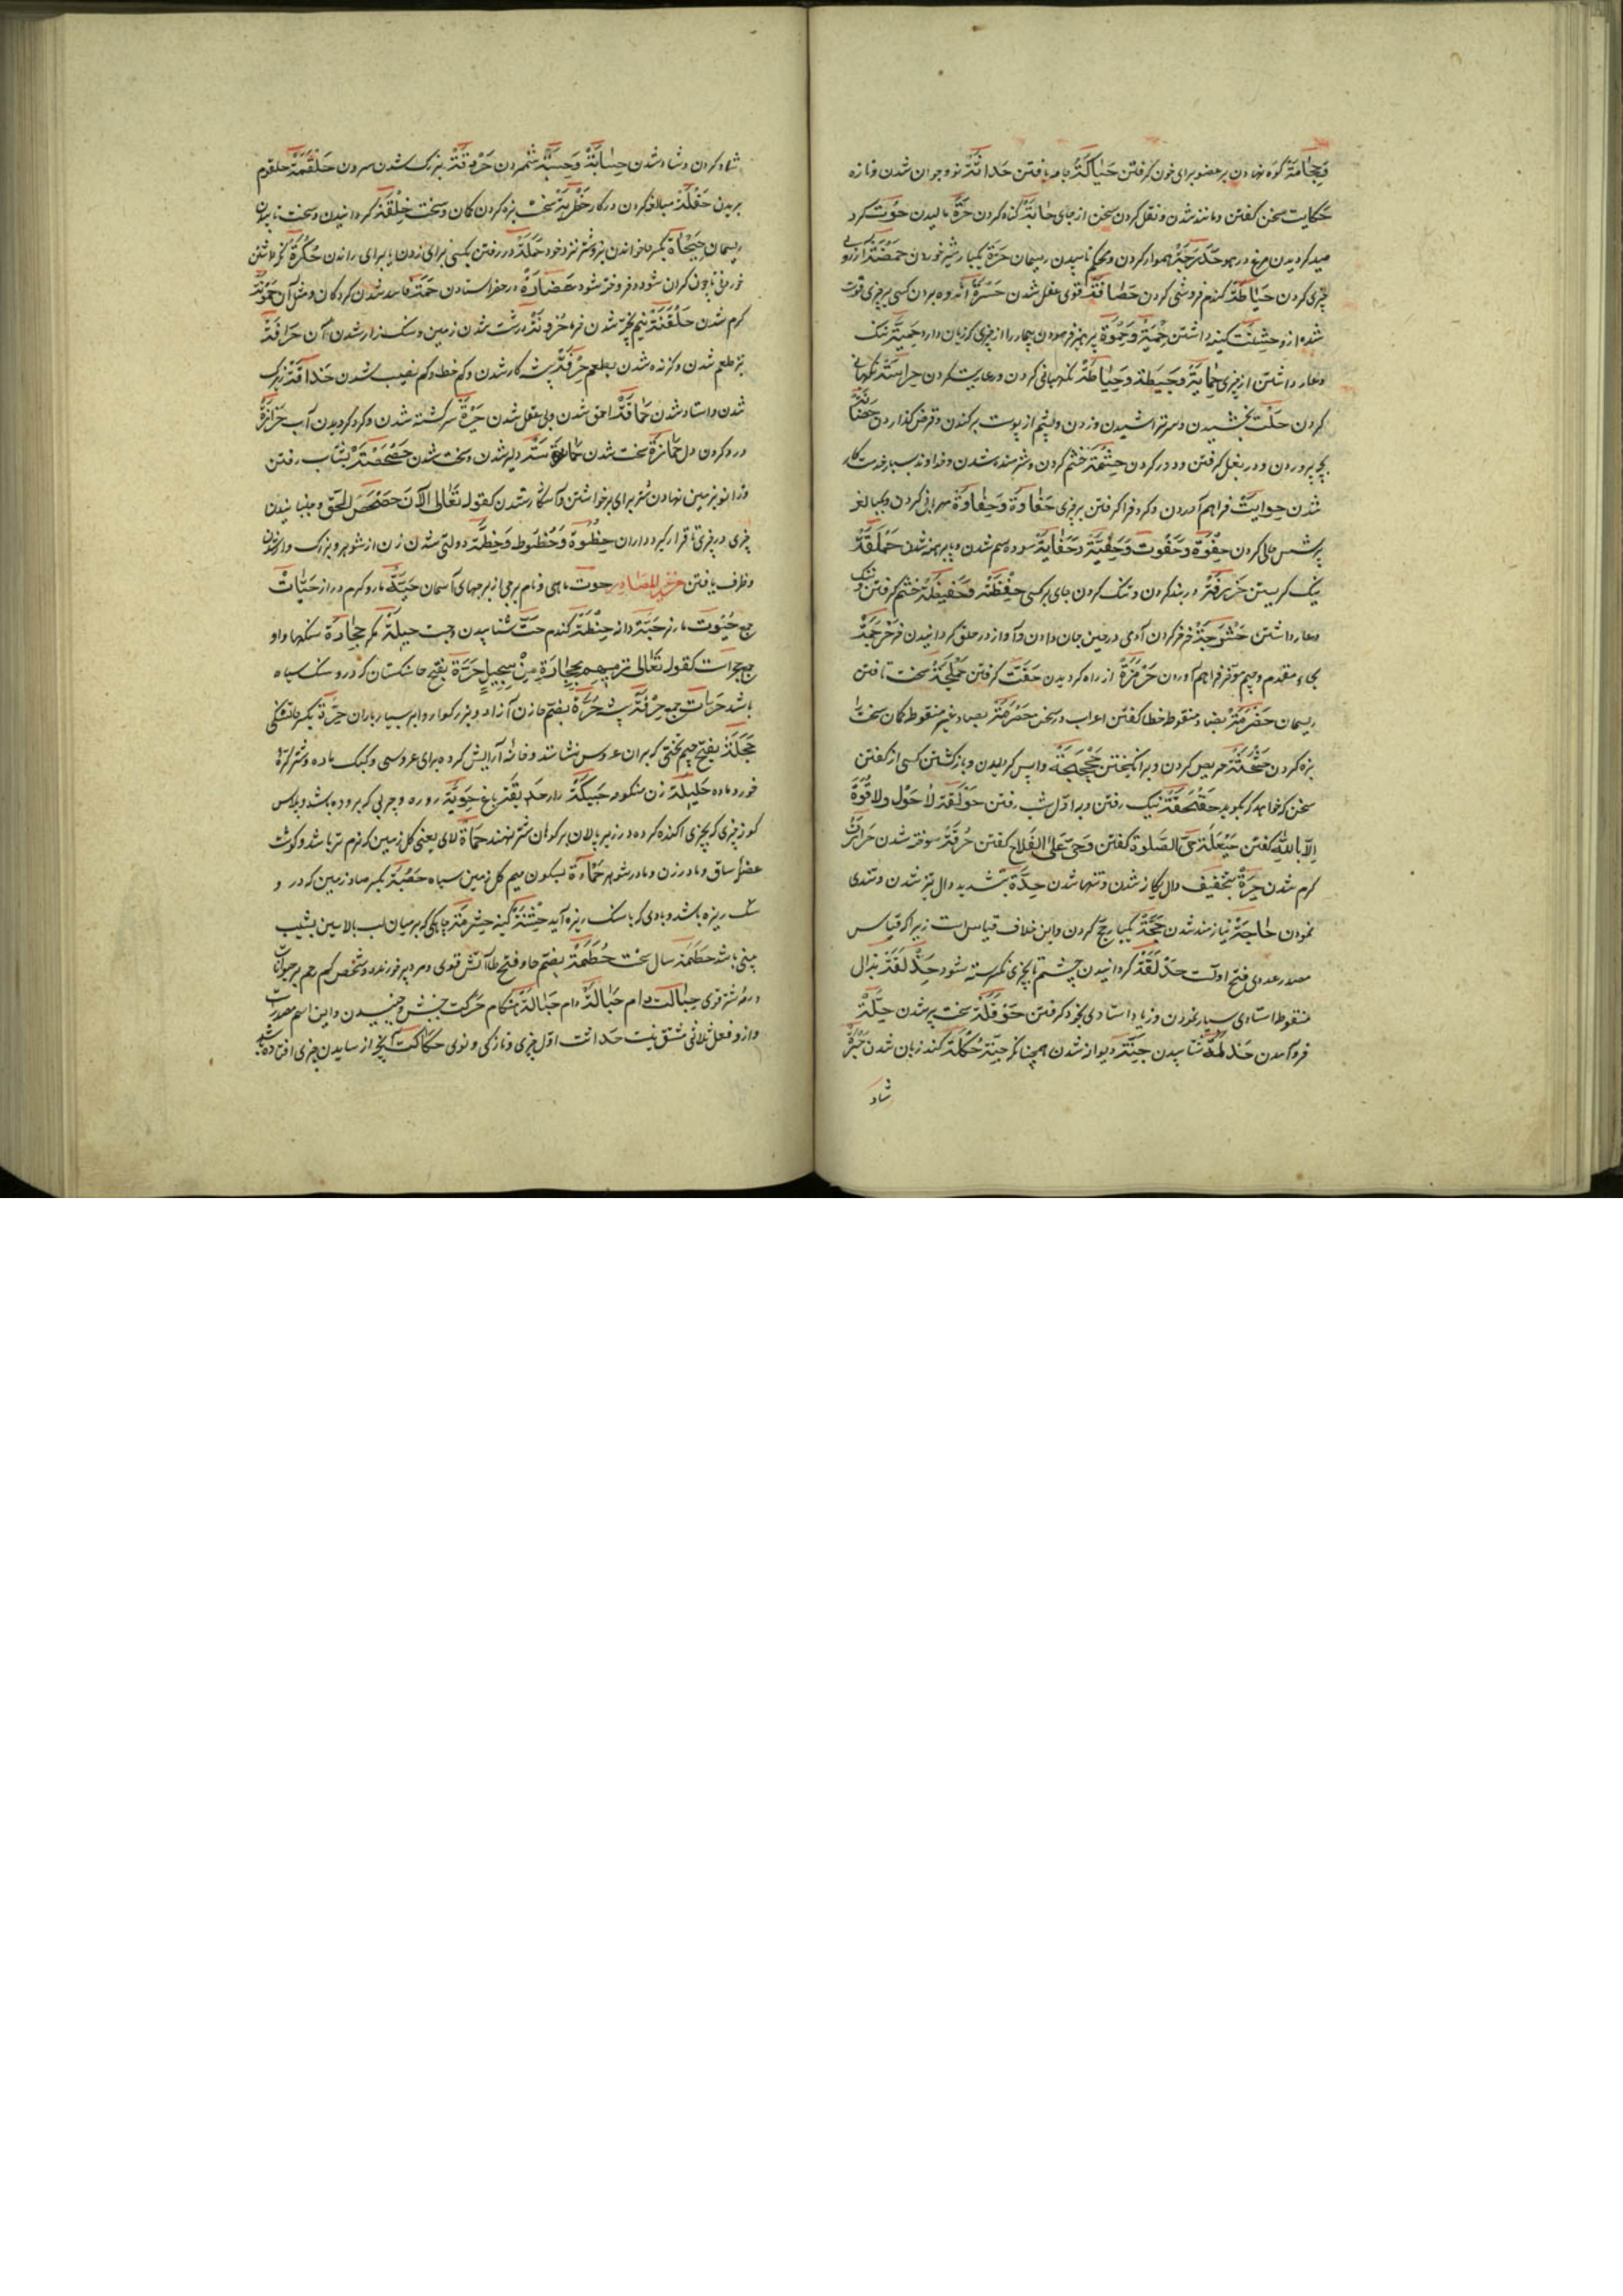 وحجامة کوه نهادن بر عضو برای خون گرفتن حیاکة جامه بافتن حداثة نو و جوان شدن و تازه
حکایت سخن گفتن و مانند شدن و نقل کردن سخن از جای حابة گناه کردن حزة مالیدن حوت گرد
صید گردیدن مرغ در هوا حدرجة هموار کردن و محکم تابیدن ریسمان حزة یکبار شیر خوردن حمضة آرزوی
چیزی کردن حناطة گندم فروشی کردن حصافة قوی عقل شدن حسرة اندوه بردن کسی بر چیزی فوت
شده ازو حشنت کینه داشتن حمیة وحموة پرهیز فرمودن بیمار را از چیزی که زیان دارد حمیة ننگ
وعار داشتن از چیزی حمایة وحیطة وحیاطة نگهبانی کردن و رعایت کردن حراسة نگهبانی
کردن حلت بخشیدن و سر تراشیدن و زدن و پشم از پوست برکندن و قرض گذاردن حضانة
بچه پروردن و در بغل گرفتن و دور کردن حشمة خشم کردن و شرمنده شدن و خداوند بسیار خدمتکار
شدن حوایت فراهم آمدن و گرد فرا گرفتن بر چیزی حفاوة وحفاوة مهربانی کردن و مبالغه
پرسش حالی کردن حفوة وحفوت وحفیة وحفایة سوده سم شدن و پابرهنه شدن حملقة
نیک نگریستن حزرقة در بند کردن و تنگ کردن جای بر کسی حفظة وحفیظة خشم گرفتن و ننگ
وعار داشتن حشرجة خرخر کردن آدمی در حین جان دادن و آواز در حلق گردانیدن خر حرجمة
بحاء مقدم وجیم مؤخر فراهم آوردن حزمزة از راه گردیدن حفت گرفتن حملجة سخت تافتن
ریسمان حضرمة بضاد منقوط خطا گفتن اعراب در سخن حصرمة بصاد غیر منقوط کمان سخت را
بزه کردن حثحثة حریص کردن و برانگیختن حجحجة واپس گردیدن و باز گشتن کسی از گفتن
سخن که خواهد که بگوید حقحقة نیک رفتن و در اول شب رفتن حولقة لا حول ولا قوة
الا بالله گفتن حیعلة حی الصلوة گفتن وحی علی الفلاح گفتن حرقة سوخته شدن حرارت
گرم شدن حدة بتخفیف دال یگانه شدن و تنها شدن حدة بتشدید دال تیز شدن و تندی
نمودن حاجة نیازمند شدن حجة یکبار حج کردن و این خلاف قیاس است زیرا که قیاس
مصدر عددی فتح اولست حدلقة گردانیدن چشم تا بچیزی نگرسته شود حذلقة بذال
منقوط استادی بسیار نمودن و زیاد استادی بخود گرفتن حوقلة سخت پیر شدن حلة
فرود آمدن حذلمة شتابیدن جنة دیوانه شدن همچنانکه جنة حکلة کند زبان شدن حبرة
شاد
شاد کردن و شاد شدن حسابة وحسبة شمردن حرقفة بزرگ شدن سرون حلقمة حلقوم
بریدن حفلة مبالغه کردن در کار حظربة سخت بزه کردن کمان و سخت خلقة گردانیدن و سخت تابیدن
ریسمان حیحاة بکسر حا خواندن بز و شتر نزد خود حملة در رفتن بکسی برای زدن یا برای راندن حکرة نگه داشتن
خوردنی تا چون گران شود و فروخته شود حضارة در حضر استادن حمتة فاسد شدن گردکان و مثل آن حموتة
گرم شدن حلقنة نیم پخته شدن خرما حزونة درشت شدن زمین و سنگ زار شدن آن حرافة
تیز طعم شدن و گزنده شدن بطعم حرفة پیشه کار شدن و کم خط و کم نصیب شدن حذاقة زیرک
شدن و استاد شدن حماقة احمق شدن و بی عقل شدن حیرة سرگشته شدن و گرد گردیدن آب حزازة
درد کردن دل حمازة سخت شدن حماسة دلیر شدن و سخت شدن حصحصة بشتاب رفتن
وزانو بر زمین نهادن شتر برای برخواستن و آشکارا شدن کقوله تعالی الآن حصحص الحق و جنبانیدن
چیزی در چیزی تا قرار گیرد در آن حظوة وحظوظ وحظة دولتی شدن زن از شوهر و بزرگ و ارشدن
وظرف یافتن من غیر المصادر حوت ماهی و نام برجی از برجهای آسمان حیة مار و کرم دراز حیات
جمع حیوت مار نر حبة دانه حنطة گندم حت شتابیدن و جست حیلة مکر حجارة سنگها واو
جمع حجرات کقوله تعالی ترمیهم بحجارة من سجیل حرة بفتح حا سنگستان که درو سنگ سیاه
باشد حرات جمع حرفة پیشه حرة بضم حا زن آزاد و بزرگوار و ابر بسیار باران حرة بکسر حا تشنگی
حجلة بفتح جیم تختی که بر آن عروس نشانند و خانه آرایش کرده برای عروسی و کبک ماده و شتر کره
خورد ماده حلیلة زن منکوحه حبیکة راه حدیقة باغ حویة روده و چربی که بر روده باشد و پلاس
کوژ چیزی که بچیزی آکنده کرده در زیر پالان بر کوهان شتر نهند حماة لای یعنی گل زمین که نرم تر باشد و گوشت
عضله ساق و مادر زن و مادر شوهر حماءة بسکون میم گل زمین سیاه حصبة بکسر صاد زمین که درو
سنگ ریزه باشد و بادی که با سنگ ریزه آید حشنة کینه حثرمة چاهکی که بر میان لب بالایین بشیب
بینی باشد حطمة سال سخت حطمة بضم حا و فتح طا آتش قوی و مرد پر خورنده و شخص کم رحم بر حیوانات
ورمه شتر قوی حبالت دام حبالة دام حبالة هنگام حرکت جنبش و جنبیدن و این اسم مصدر است
وازو فعل ثلاثی مشتق نیست حداثت اول چیزی و تازکی و نوی حکاکت آنچه از ساییدن چیزی افتاده باشد